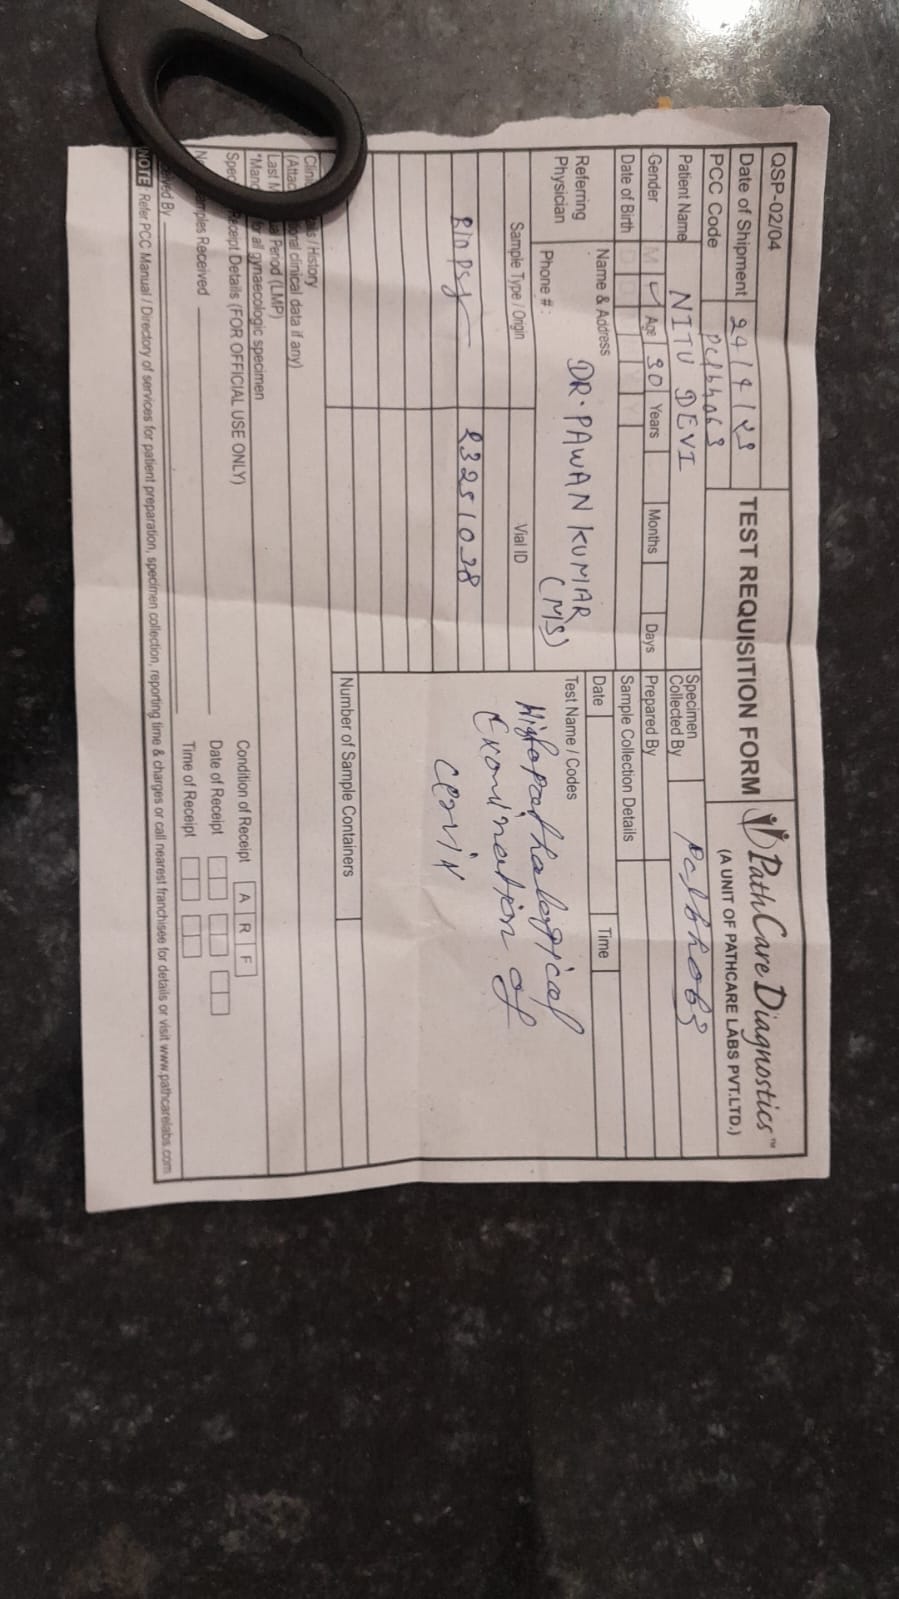 QSP-02/04
TEST REQUISITION FORM
PathCare Diagnostics™
(A UNIT OF PATHCARE LABS PVT.LTD.)
Date of Shipment
PCC Code
Patient Name NITU DEVI
Specimen Collected By
Gender M ✓ Age 30 Years Months Days
Prepared By
Date of Birth
Sample Collection Details
Referring Physician
Name & Address
DR. PAWAN KUMAR
(MS)
Phone #:
Date
Time
Test Name / Codes
Histopathological
Examination of
cervix
Sample Type / Origin
Vial ID
Biopsy
23251038
Number of Sample Containers
/ History
clinical data if any)
Period (LMP)
all gynaecologic specimen
Receipt Details (FOR OFFICIAL USE ONLY)
Received
Condition of Receipt A R F
Date of Receipt
Time of Receipt
By
NOTE Refer PCC Manual / Directory of services for patient preparation, specimen collection, reporting time & charges or call nearest franchisee for details or visit www.pathcarelabs.com